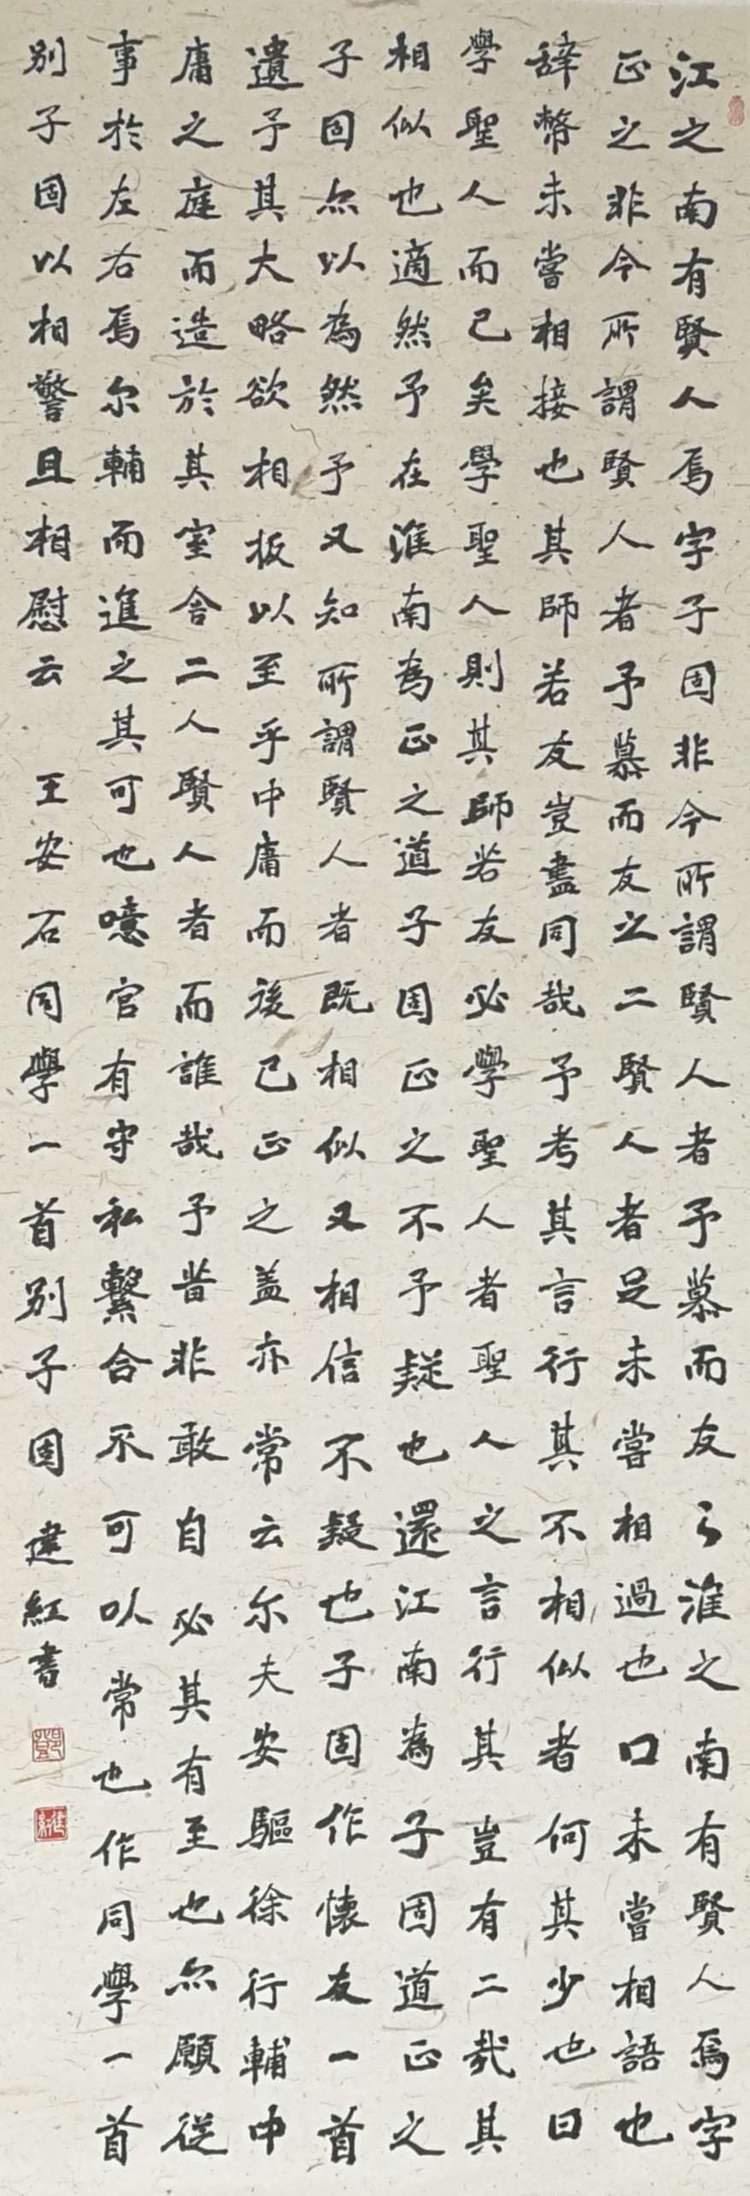 江之南有賢人焉字子固非今所謂賢人者予慕而友之淮之南有賢人焉字
正之非今所謂賢人者予慕而友之二賢人者足未嘗相過也口未嘗相語也
辭幣未嘗相接也其師若友豈盡同哉予考其言行其不相似者何其少也曰
學聖人而已矣學聖人則其師若友必學聖人者聖人之言行其豈有二哉其
相似也適然予在淮南為正之道子固正之不予疑也還江南為子固道正之
子固尒以為然予又知所謂賢人者既相似又相信不疑也子固作懷友一首
遺予其大略欲相扳以至乎中庸而後已正之蓋亦常云尔夫安驅徐行輔中
庸之庭而造於其室舍二人賢人者而誰哉予昔非敢自必其有至也尒願從
事於左右焉尔輔而進之其可也噫官有守私繫合不可以常也作同學一首
別子固以相警且相慰云 王安石同學一首別子固 建紅書